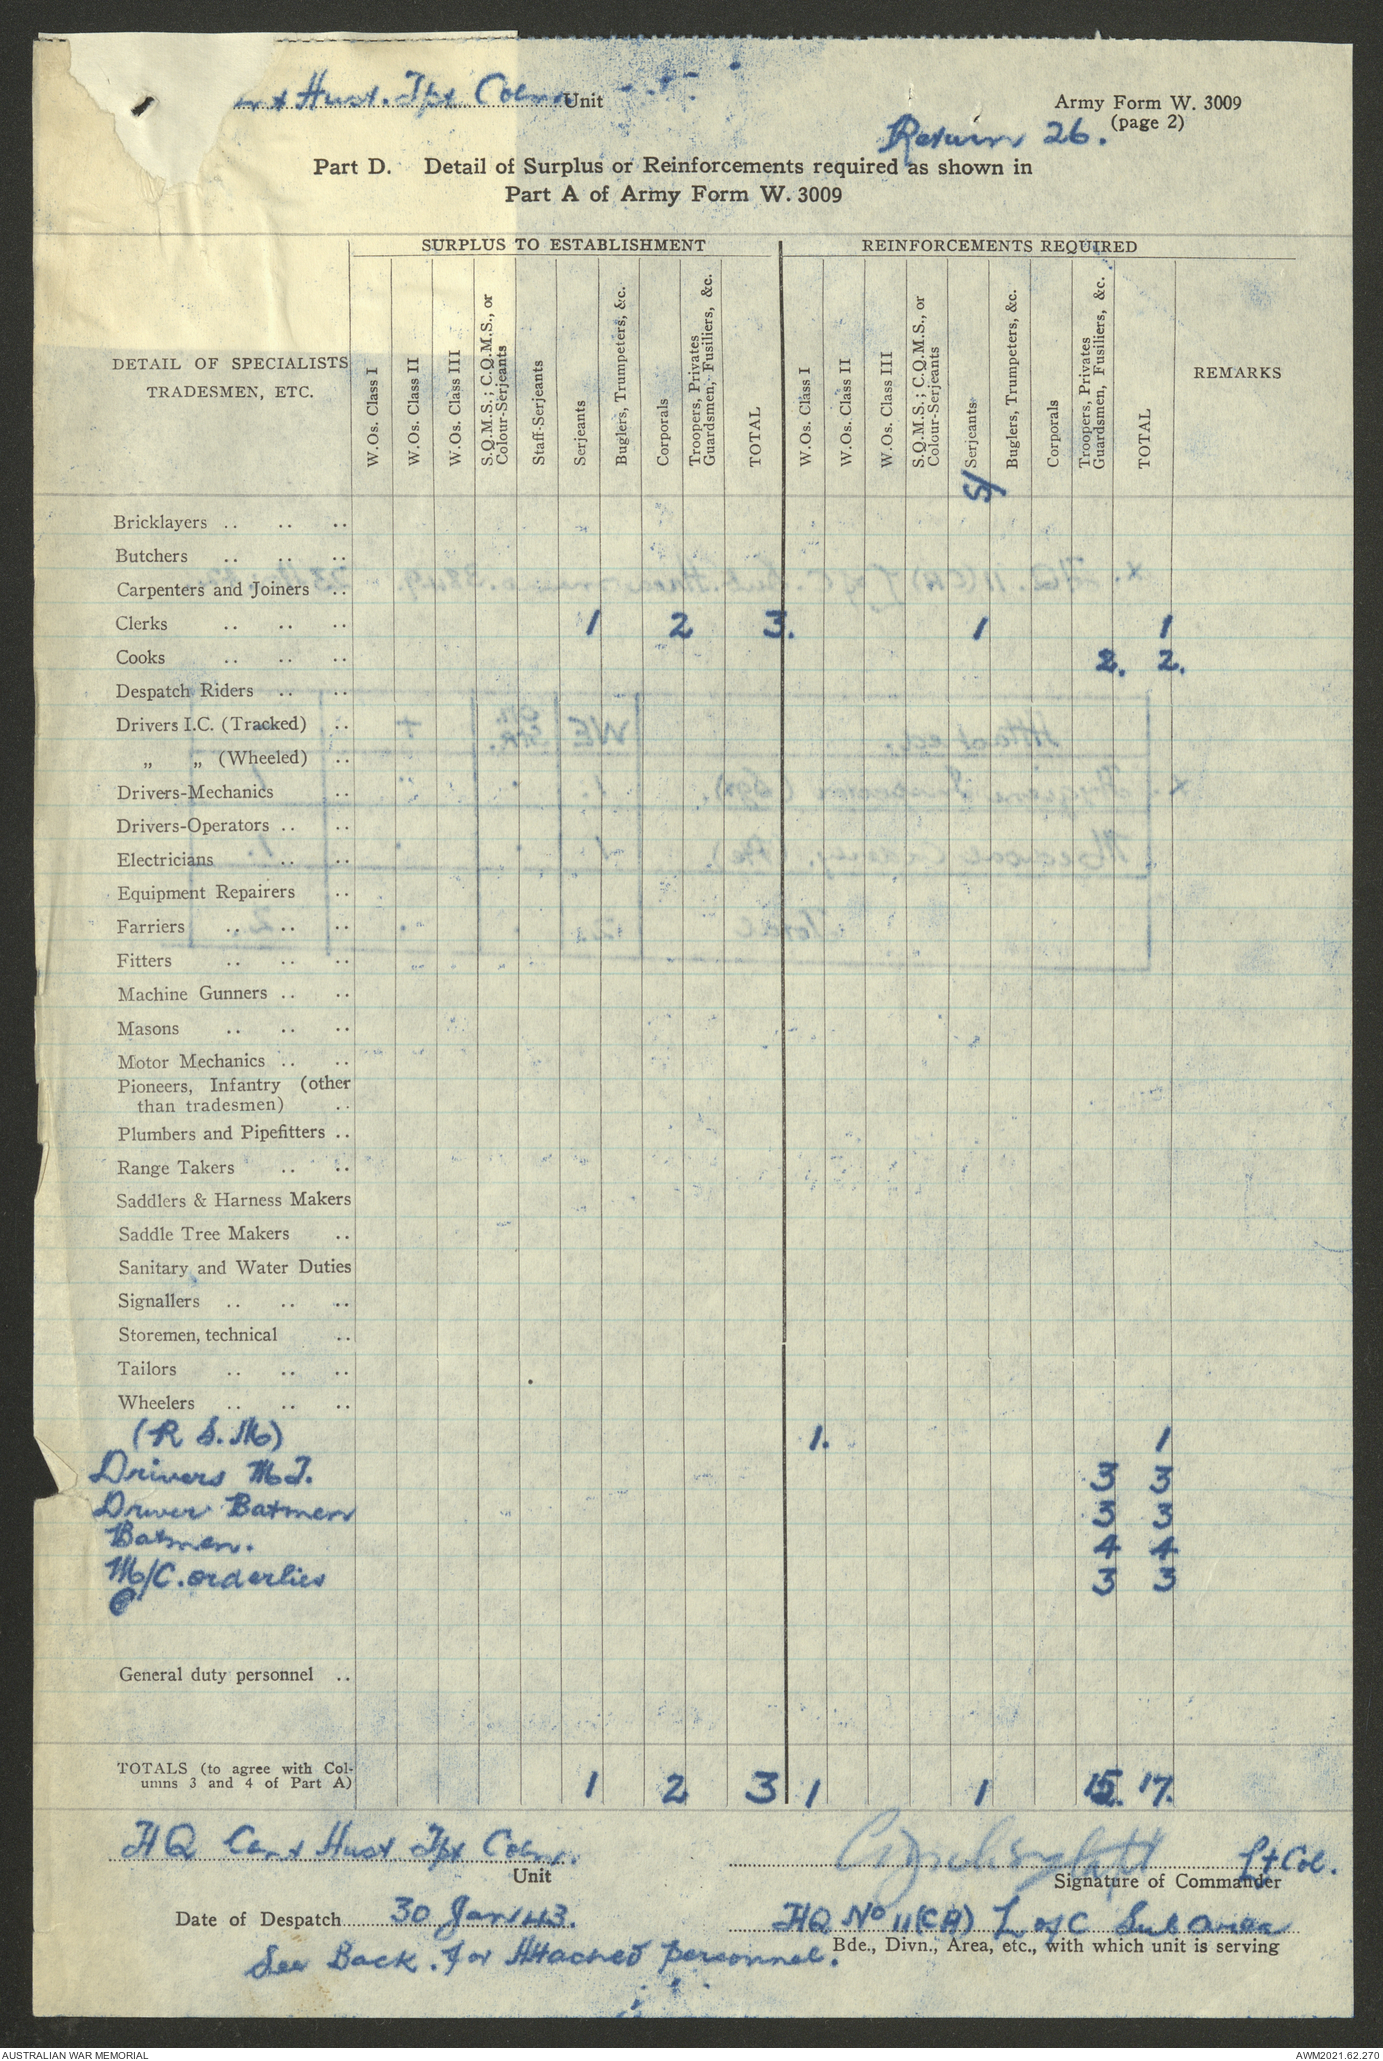 Hust. Tpt Coln Unit
Army Form W. 3009
(page 2)
Return 26.
Part D. Detail of Surplus or Reinforcements required as shown in
Part A of Army Form W. 3009
SURPLUS TO ESTABLISHMENT REINFORCEMENTS REQUIRED
DETAIL OF SPECIALISTS
TRADESMEN, ETC.
W.Os. Class I
W.Os. Class II
W.Os. Class III
S.Q.M.S.; C.Q.M.S., or
Colour-Serjeants
Staff-Serjeants
Serjeants
Buglers, Trumpeters, &c.
Corporals
Troopers, Privates
Guardsmen, Fusiliers, &c.
TOTAL
W.Os. Class I
W.Os. Class II
W.Os. Class III
S.Q.M.S.; C.Q.M.S., or
Colour-Serjeants
S/ Serjeants
Buglers, Trumpeters, &c.
Corporals
Troopers, Privates
Guardsmen, Fusiliers, &c.
TOTAL
REMARKS
Bricklayers .. .. ..
Butchers .. .. ..
Carpenters and Joiners ..
Clerks .. .. .. 1 2 3. 1 1
Cooks .. .. .. 2. 2.
Despatch Riders .. ..
Drivers I.C. (Tracked) ..
„ „ (Wheeled) ..
Drivers-Mechanics ..
Drivers-Operators .. ..
Electricians .. ..
Equipment Repairers ..
Farriers .. .. ..
Fitters .. .. ..
Machine Gunners .. ..
Masons .. .. ..
Motor Mechanics .. ..
Pioneers, Infantry (other
than tradesmen) ..
Plumbers and Pipefitters ..
Range Takers .. ..
Saddlers & Harness Makers
Saddle Tree Makers ..
Sanitary and Water Duties
Signallers .. .. ..
Storemen, technical ..
Tailors .. .. ..
Wheelers .. .. ..
(R S. M) 1. 1
Drivers MT. 3 3
Driver Batmen 3 3
Batmen. 4 4
M/C. orderlies 3 3
General duty personnel ..
TOTALS (to agree with Col-
umns 3 and 4 of Part A) 1 2 3 1 1 15. 17.
HQ Cent Hust Tpt Coln.
Unit
Lt Col.
Signature of Commander
Date of Despatch 30 Jan 43.
HQ No 11(CA) L of C Sub Area
Bde., Divn., Area, etc., with which unit is serving
See Back. for Attached personnel.
AUSTRALIAN WAR MEMORIAL
AWM2021.62.270